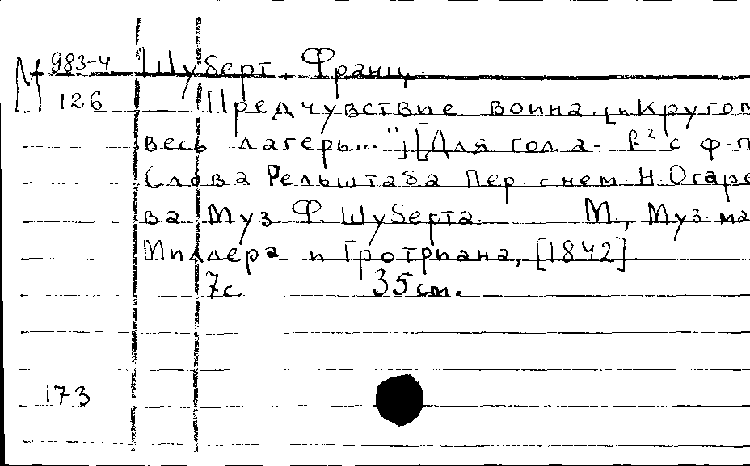 М 983-4 Шуберт, Франц.
126 Предчувствие воина. ["Кругом
весь лагерь..."] [Для голоса с ф-п
Слова Рельштаба Пер с нем Н. Огаре
ва Муз Ф Шуберта. М., Муз ма
Миллера и Гротриана, [1842]
7с. 35 см.
173